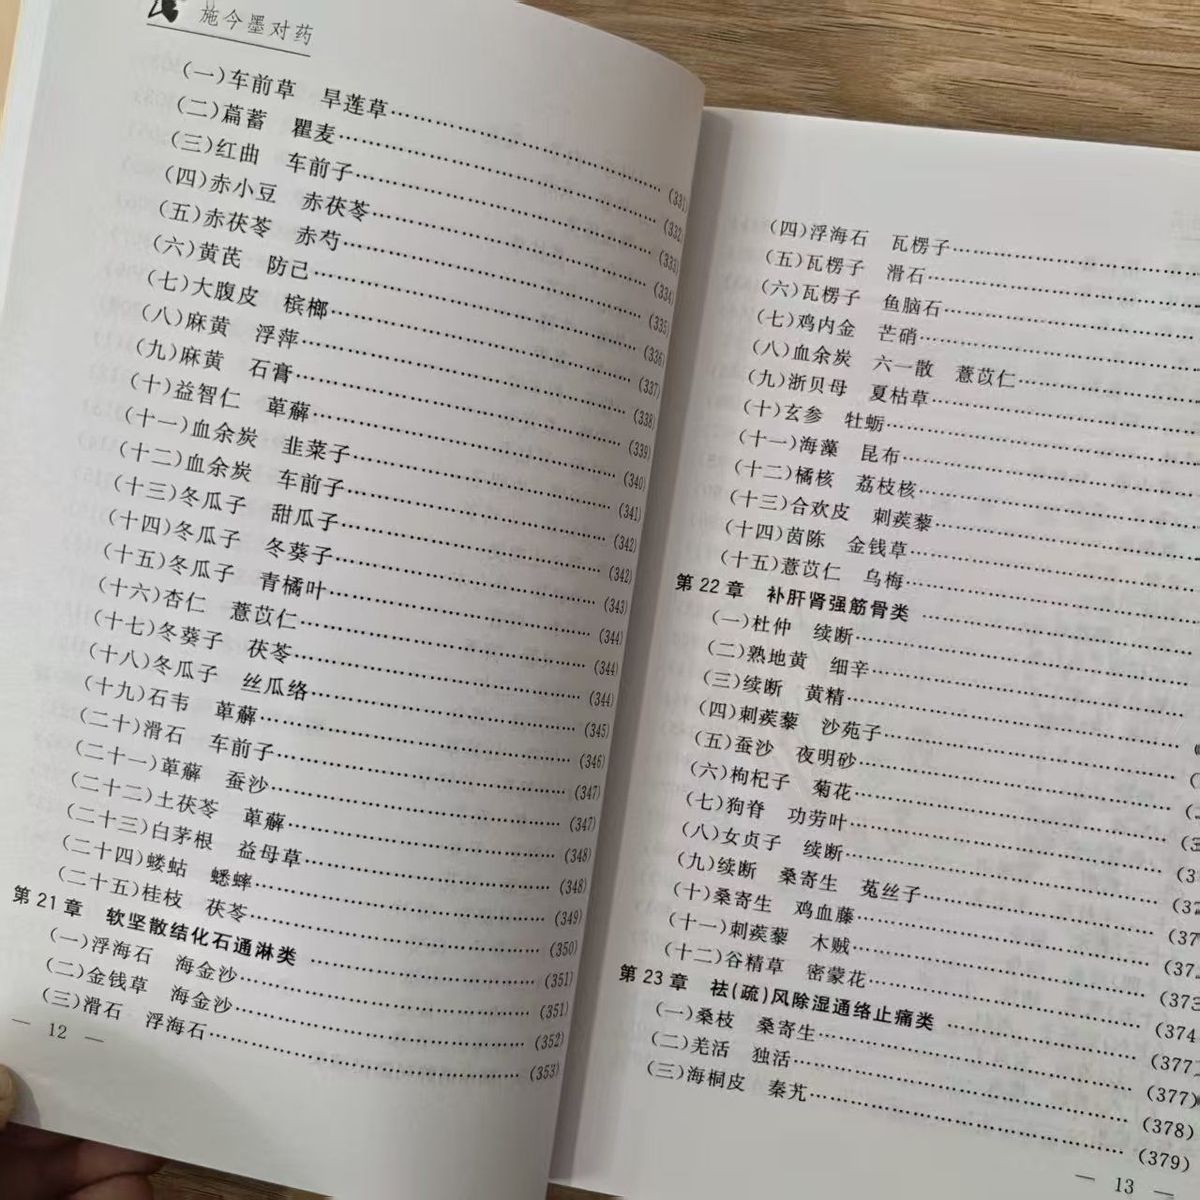 施今墨对药
(一)车前草　旱莲草……(331)
(二)萹蓄　瞿麦……(332)
(三)红曲　车前子……(333)
(四)赤小豆　赤茯苓……(334)
(五)赤茯苓　赤芍……(335)
(六)黄芪　防己……(336)
(七)大腹皮　槟榔……(337)
(八)麻黄　浮萍……(338)
(九)麻黄　石膏……(339)
(十)益智仁　萆薢……(340)
(十一)血余炭　韭菜子……(341)
(十二)血余炭　车前子……(342)
(十三)冬瓜子　甜瓜子……(342)
(十四)冬瓜子　冬葵子……(343)
(十五)冬瓜子　青橘叶……(344)
(十六)杏仁　薏苡仁……(344)
(十七)冬葵子　茯苓……(344)
(十八)冬瓜子　丝瓜络……(345)
(十九)石韦　萆薢……(346)
(二十)滑石　车前子……(347)
(二十一)萆薢　蚕沙……(347)
(二十二)土茯苓　萆薢……(348)
(二十三)白茅根　益母草……(348)
(二十四)蝼蛄　蟋蟀……(349)
(二十五)桂枝　茯苓……(350)
第21章　软坚散结化石通淋类……(351)
(一)浮海石　海金沙……(351)
(二)金钱草　海金沙……(352)
(三)滑石　浮海石……(353)
— 12 —
(四)浮海石　瓦楞子……
(五)瓦楞子　滑石……
(六)瓦楞子　鱼脑石……
(七)鸡内金　芒硝……
(八)血余炭　六一散　薏苡仁……
(九)浙贝母　夏枯草……
(十)玄参　牡蛎……
(十一)海藻　昆布……
(十二)橘核　荔枝核……
(十三)合欢皮　刺蒺藜……
(十四)茵陈　金钱草……
(十五)薏苡仁　乌梅……
第22章　补肝肾强筋骨类……
(一)杜仲　续断……
(二)熟地黄　细辛……
(三)续断　黄精……
(四)刺蒺藜　沙苑子……
(五)蚕沙　夜明砂……
(六)枸杞子　菊花……
(七)狗脊　功劳叶……
(八)女贞子　续断……
(九)续断　桑寄生　菟丝子……
(十)桑寄生　鸡血藤……(372
(十一)刺蒺藜　木贼……(373
(十二)谷精草　密蒙花……(374
第23章　祛(疏)风除湿通络止痛类……(377)
(一)桑枝　桑寄生……(377)
(二)羌活　独活……(378)
(三)海桐皮　秦艽……(379)
— 13 —